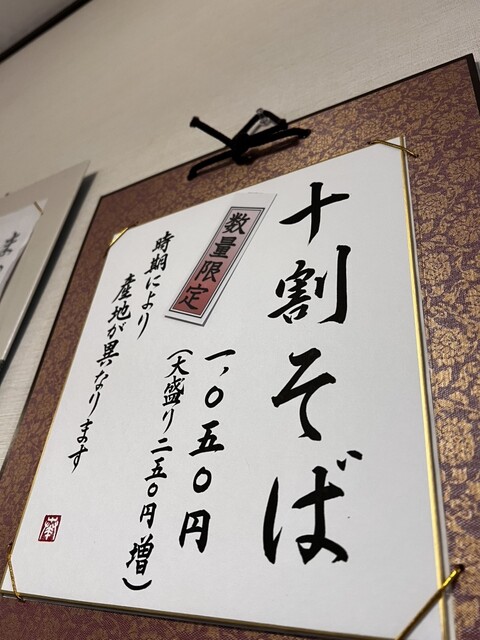 十割そば
数量限定
一、〇五〇円
(大盛り二五〇円増)
時期により
産地が異なります